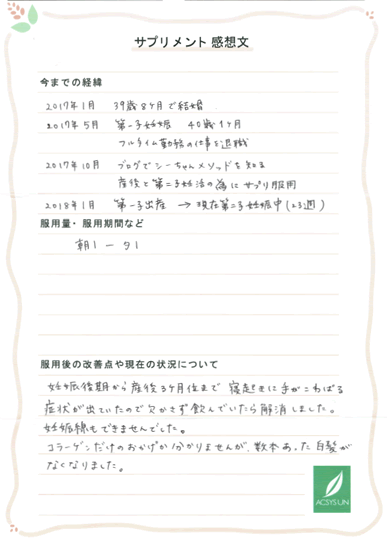 サプリメント 感想文
今までの経緯
2017年1月 39歳8ヶ月で結婚
2017年5月 第一子妊娠 40歳1ヶ月
フルタイム勤務の仕事を退職
2017年10月 ブログでシーちゃんメソッドを知る
産後と第二子妊活の為にサプリ服用
2018年1月 第一子出産 → 現在第二子妊娠中(23週)
服用量・服用期間など
朝1 ー 夕1
服用後の改善点や現在の状況について
妊娠後期から産後3ヶ月位まで 寝起きに手がこわばる
症状が出ていたので欠かさず飲んでいたら解消しました。
妊娠線もできませんでした。
コラーゲンだけのおかげか分かりませんが、数本あった白髪が
なくなりました。
ACSYS UN